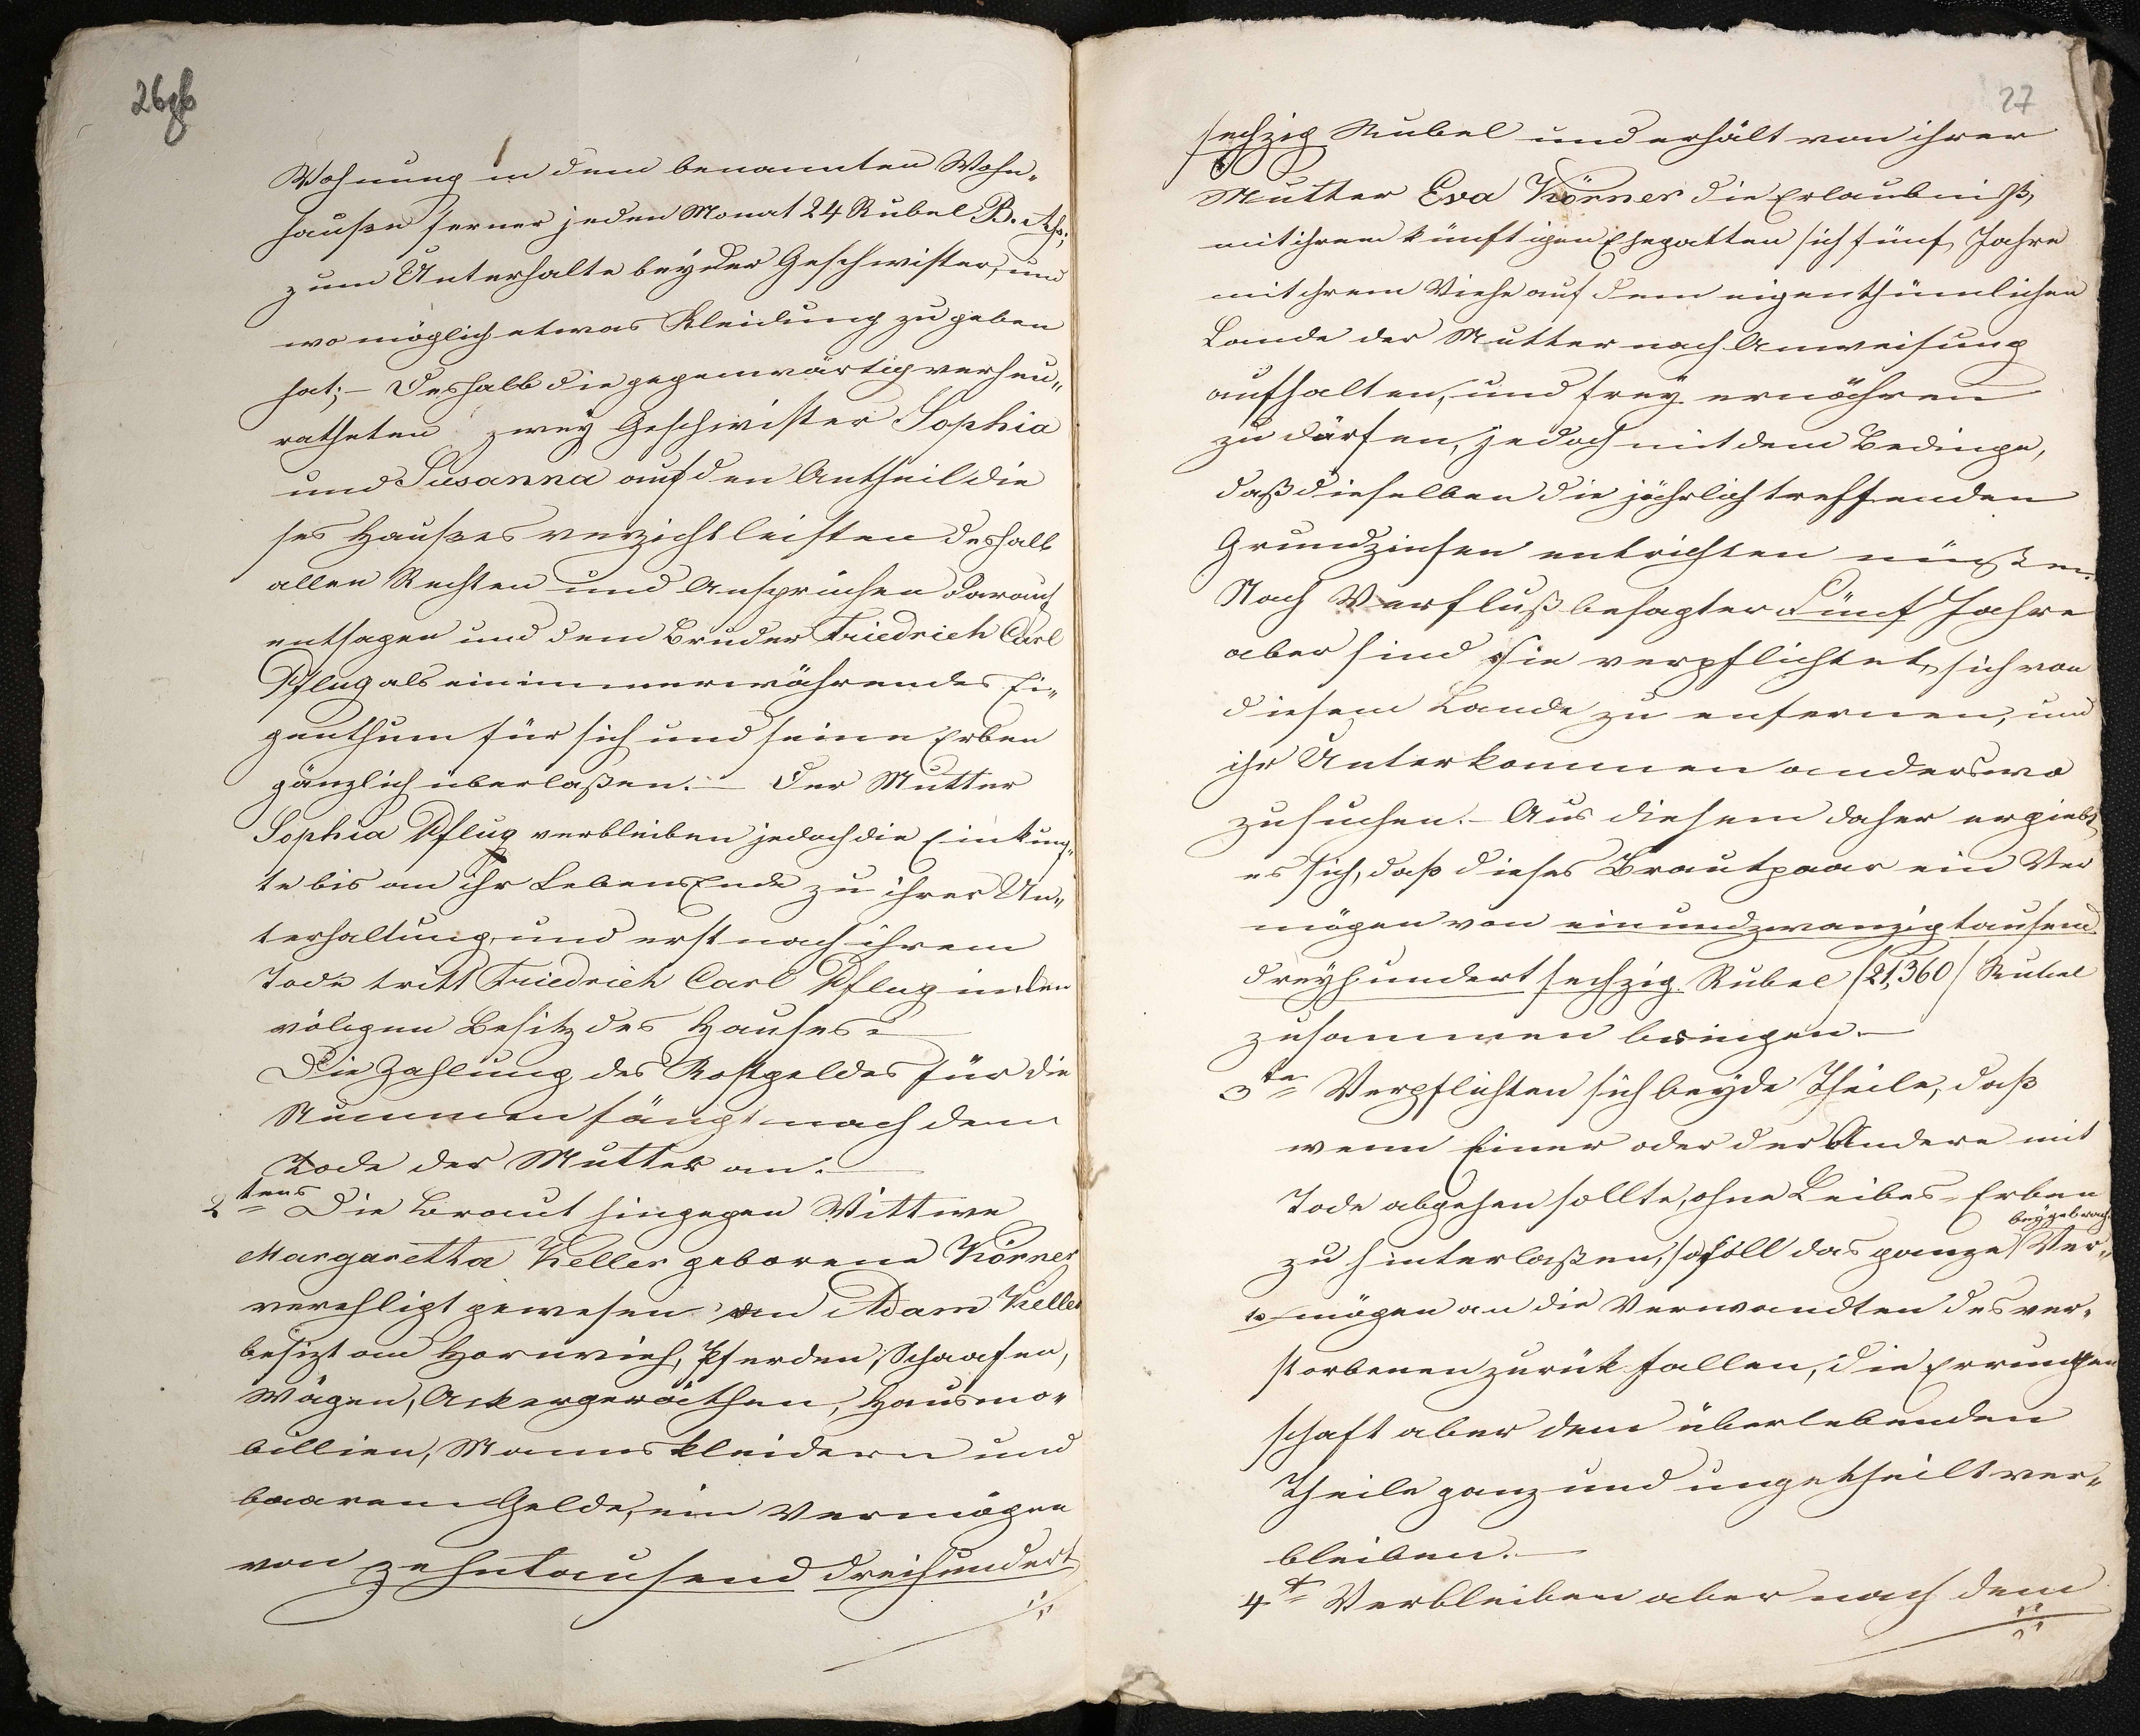 26 ob
Wohnung in dem benannten Wohn„
hauße ferner jeden Monat 24 Rubel B. Ass;
zum Unterhalte beyder Geschwister, und
wo möglich etwas Kleidung zu geben
hat; – Deshalb die gegenwärtig verheu„
ratheten zwey Geschwister Sophia
und Susanna auf den Antheil die
ses Haußes verzicht leisten deshalb
allen Rechten und Ansprüchen darauf
entsagen und dem Bruder Friedrich Carl
Pflug als ein immerwährendes Ei„
genthum für sich und seine Erben
gänzlich überlaßen. – Der Mutter
Sophia Pflug verbleiben jedoch die Einkünf„
te bis an ihr LebensEnde zu ihrer Un„
terhaltung, und erst nach ihrem
Tode tritt Friedrich Carl Pflug in den
völigen Besitz des Hauses. –
Die Zahlung des Kostgeldes für die
Stummen fängt nach dem
Tode der Mutter an. –
2tens Die Braut hingegen Wittwe
Margaretha Keller geborene Körner
verehligt gewesen an Adam Keller
besizt an Hornvieh, Pferden, Schaafen,
Wägen, Ackergeräthen, Hausmo„
billien, Mannskleidern und
baarem Gelde, ein Vermögen
von zehntausend dreihundert
27
sechzig Rubel und erhält von ihrer
Mutter Eva Körner die Erlaubniß,
mit ihrem künftigen Ehegatten sich fünf Jahre
mit ihrem Viehe auf dem eigenthümlichen
Lande der Mutter nach Anweisung
aufhalten, und frey ernähren
zu därfen, jedoch mit dem Bedinge,
daß dieselben die jährlich treffenden
Grundzinsen entrichten müßten.
Nach Verfluß besagter Fünf Jahre
aber sind sie verpflichtet, sich von
diesem Lande zu enfernen, und
ihr Unterkommen anderswo
zu suchen. – Aus diesem daher ergiebt
es sich, daß dieses Brautpaar ein Ver
mögen von einundzwanzigtausend
dreyhundert sechzig Rubel (21,360) Rubel
zusammen bringen. –
3te Verpflichten sich beyde Theile, daß
wenn Einer oder der Andere mit
Tode abgehen sollte, ohne Leibes-Erben
beygebrach„
zu hinterlaßen, so soll das ganze Ver„
te mögen an die Verwandten des ver„
storbenen zurük fallen, die Errungen
schaft aber dem überlebenden
Theile ganz und ungetheilt ver„
bleiben. –
4t Verbleiben aber nach dem